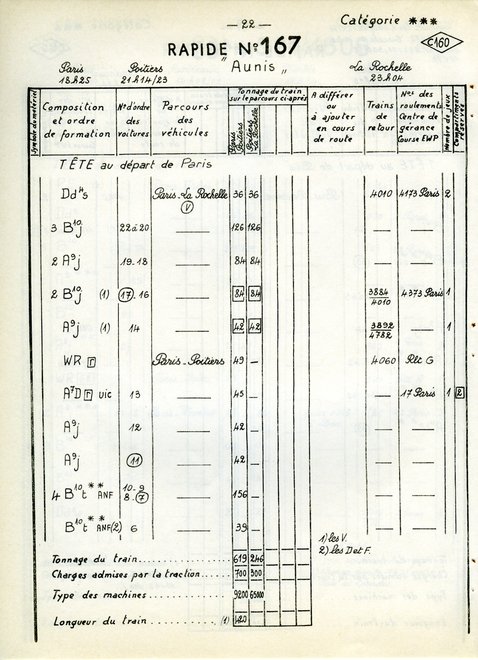 — 22 —
Catégorie ***
RAPIDE N° 167
C160
Paris Poitiers "Aunis" La Rochelle
18h25 21h14/23 23h04
Symbole du matériel
Composition et ordre de formation
N°d'ordre des voitures
Parcours des véhicules
Tonnage du train sur le parcours ci-après
Paris Poitiers
Poitiers La Rochelle
A différer ou à ajouter en cours de route
Trains de retour
Nos des roulements Centre de gérance Course EWP
Nombre de jeux
Compartiments réservés
TÊTE au départ de Paris
Dd4s Paris-La Rochelle 36 36 4010 4173 Paris 2
V
3 B10j 22 à 20 —— 126 126 —— ——
2 A9j 19-18 —— 84 84 —— ——
2 B10j (1) 17-16 —— 84 84 3884/4010 4373 Paris 1
A9j (1) 14 —— 42 42 3892/4782 —— 1
WR r Paris-Poitiers 49 — 4060 Rlt G
A7D r vic 13 —— 45 — —— 17 Paris 1 2
A9j 12 —— 42 — —— ——
A9j 11 —— 42 — —— ——
4 B10t ** ANF 10-9 8-7 —— 156 — —— ——
B10t ** ANF(2) 6 —— 39 — —— ——
1) les V.
2) les D et F.
Tonnage du train 619 246
Charges admises par la traction 700 300
Type des machines 9200 65000
Longueur du train (1) 420